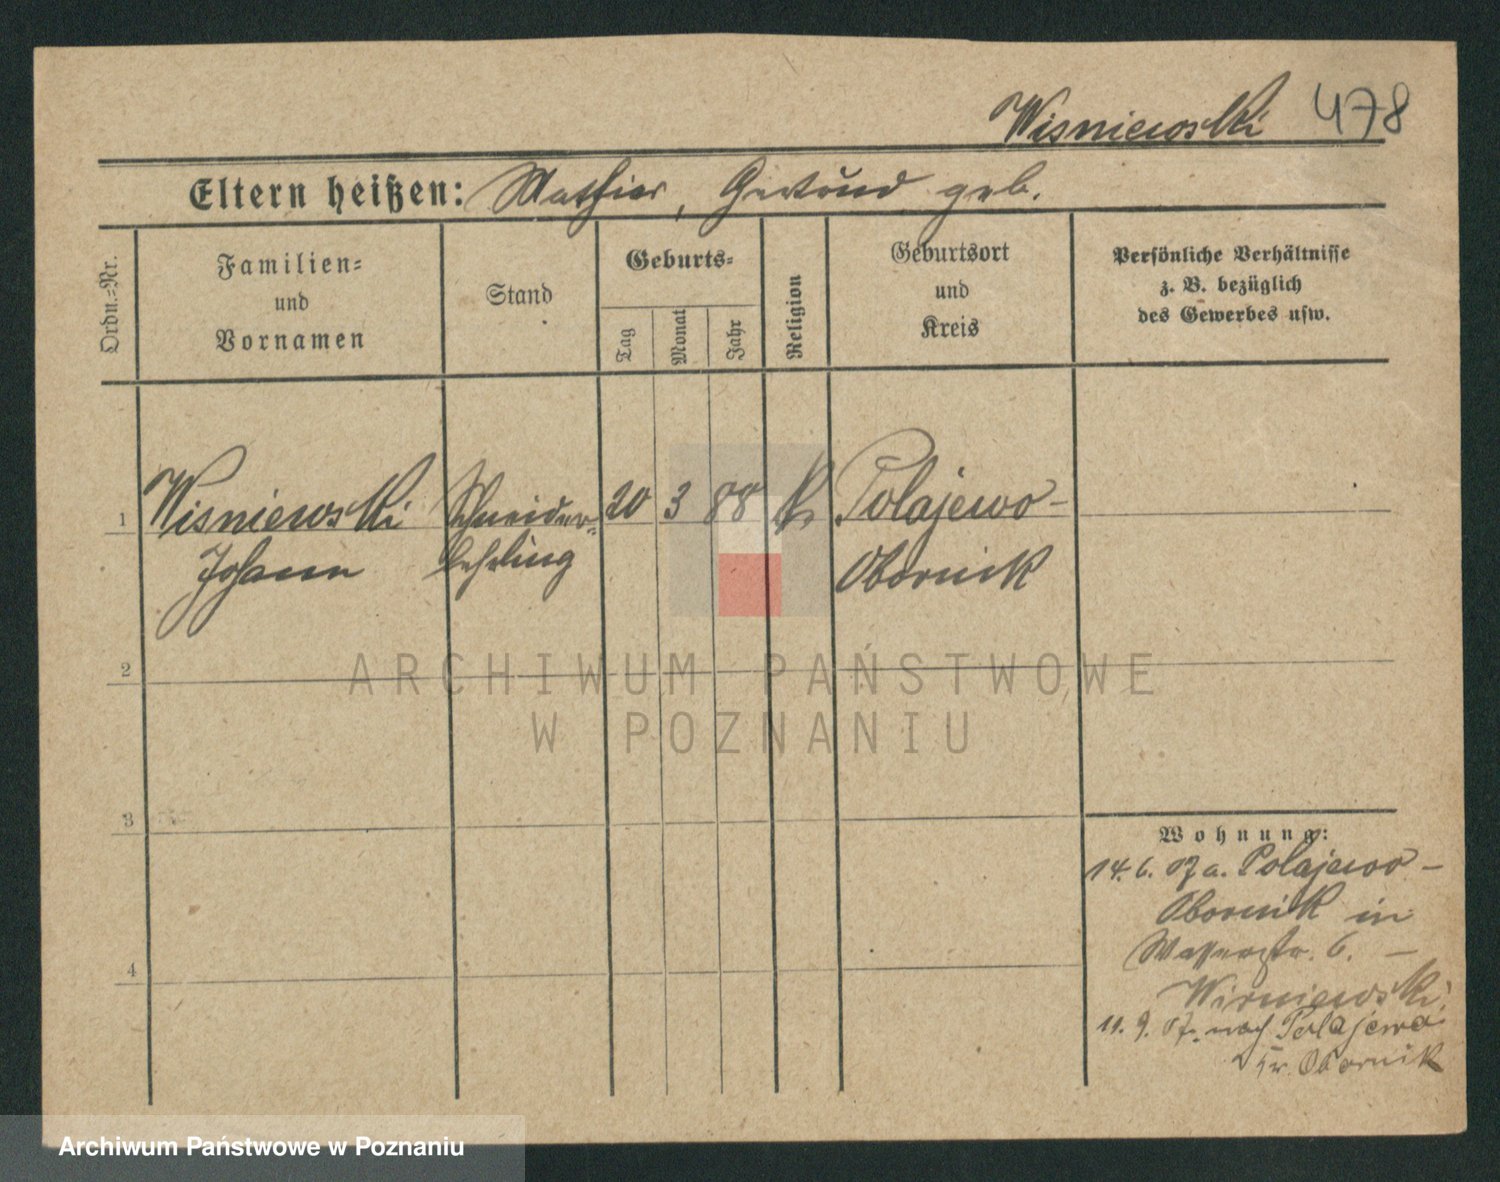 Wisniewski 478
Eltern heißen: Mathias, Gertrud geb.
Ordn.-Nr.
Familien-
und
Vornamen
Stand
Geburts-
Tag
Monat
Jahr
Religion
Geburtsort
und
Kreis
Persönliche Verhältnisse
z. B. bezüglich
des Gewerbes usw.
1 Wisniewski Schneider- 20 3 88 k Polajewo -
Johann lehrling Obornik
2
ARCHIWUM PAŃSTWOWE
W POZNANIU
3
Wohnung:
14. 6. 07 a. Polajewo -
Obornik in
Wasserstr. 6. -
Wisniewski
4
11. 9. 07. nach Polajewo
Kr. Obornik
Archiwum Państwowe w Poznaniu